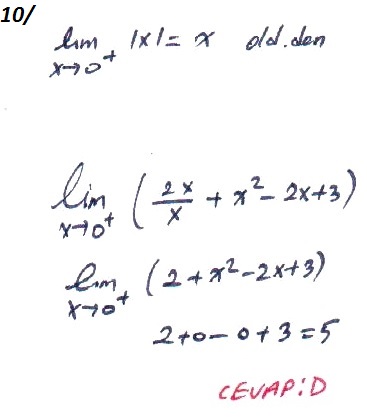 10/
lim x→0⁺ |x| = x old.den
lim x→0⁺ (2x/x + x² - 2x+3)
lim x→0⁺ (2+x²-2x+3)
2+0-0+3=5
CEVAP:D